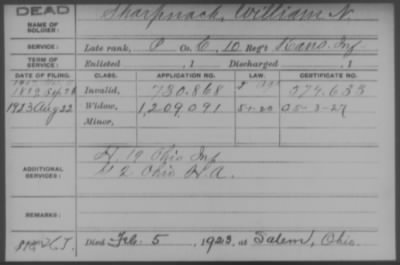 DEAD
NAME OF SOLDIER: Sharpnack, William N.
SERVICE: Late rank, P Co. C, 10 Reg't Kans. Inf
TERM OF SERVICE: Enlisted , 1 Discharged , 1
DATE OF FILING. CLASS. APPLICATION NO. LAW. CERTIFICATE NO.
Invalid, 730.868
1923 Aug 22 Widow, 1,209,091
Minor,
ADDITIONAL SERVICES: H. 19 Ohio Inf
2 Ohio H.A.
REMARKS:
Died Feb. 5, 1923, at Salem, Ohio.